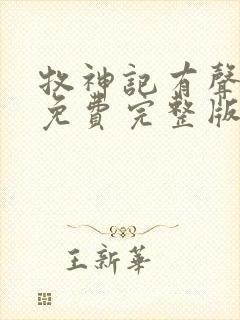 牧神記有聲
免費完整版
王新華